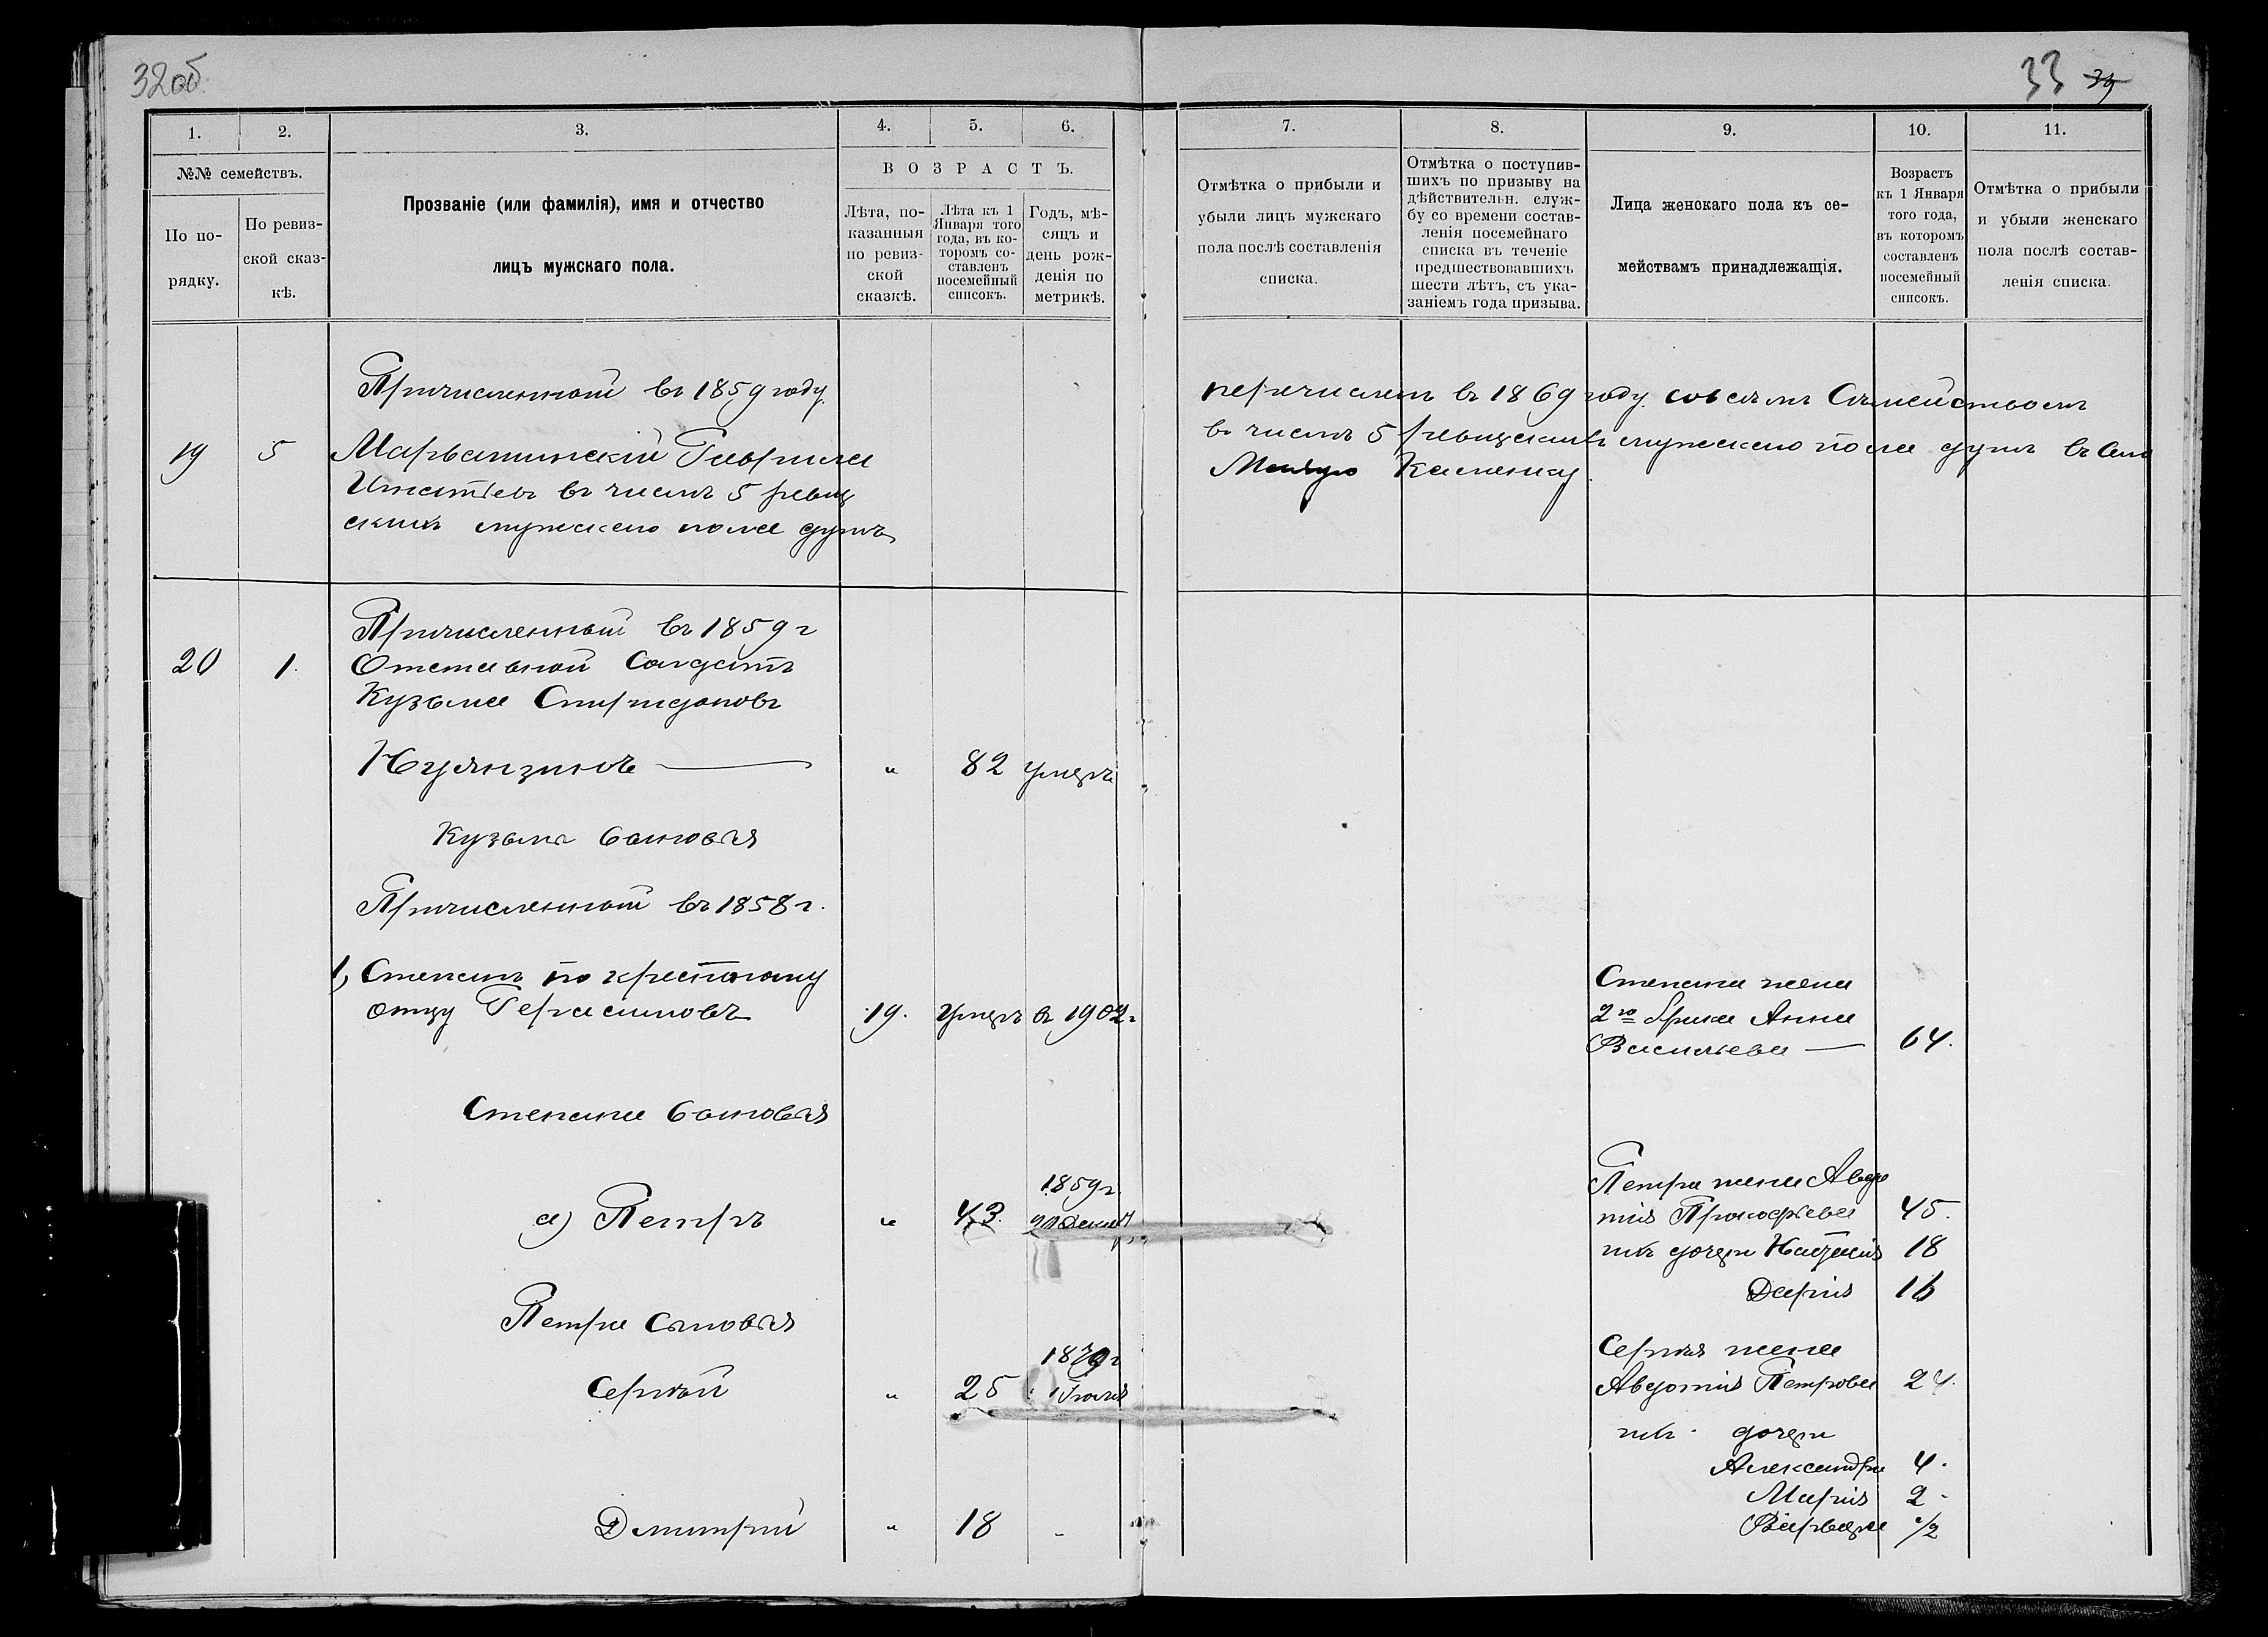 32об.
33 39
1.
2.
3.
4.
5.
6.
7.
8.
9.
10.
11.
№№ семействъ.
По по-
рядку.
По ревиз-
ской сказ-
кѣ.
Прозваніе (или фамилія), имя и отчество
лицъ мужскаго пола.
ВОЗРАСТЪ.
Лѣта, по-
казанныя
по ревиз-
ской
сказкѣ.
Лѣта къ 1
Января того
года, въ ко-
торомъ со-
ставленъ
посемейный
списокъ.
Годъ, мѣ-
сяцъ и
день рож-
денія по
метрикѣ.
Отмѣтка о прибыли и
убыли лицъ мужскаго
пола послѣ составленія
списка.
Отмѣтка о поступив-
шихъ по призыву на
дѣйствительн. служ-
бу со времени состав-
ленія посемейнаго
списка въ теченіе
предшествовавшихъ
шести лѣтъ, съ ука-
заніемъ года призыва.
Лица женскаго пола къ се-
мействамъ принадлежащія.
Возрастъ
къ 1 Января
того года,
въ которомъ
составленъ
посемейный
списокъ.
Отмѣтка о прибыли
и убыли женскаго
пола послѣ состав-
ленія списка.
Причисленный въ 1859 году
19 5 Гаврила
Игнатьевъ въ числѣ 5 ревиз
скихъ мужскаго пола душъ
перечисленъ въ 1869 году совсемъ Семействомъ
въ числѣ 5 ревизскихъ мужскаго пола душъ въ
Малую Каменку
Причисленный въ 1859 г
20 1. Отставной Солдатъ
Кузьма Спиридоновъ
" 82 умеръ
Кузьмы сыновья
Причисленный въ 1858 г.
1, Степанъ по крестному
отцу Герасимовъ 19. Умеръ въ 1902 г
Степана жена
2го брака Анна
Васильева — 64.
Степана сыновья
1859 г
а) Петръ " 43.
Петра жена Авдо
тія Прокофьева 45.
ихъ дочери 18
Дарія 16
Петра Сыновья
1879 г
Сергѣй " 25
Сергѣя жена
Авдотія Петрова 24.
ихъ дочери
Александра 4.
Марія 2
Варвара 1/2
Дмитрій " 18 -